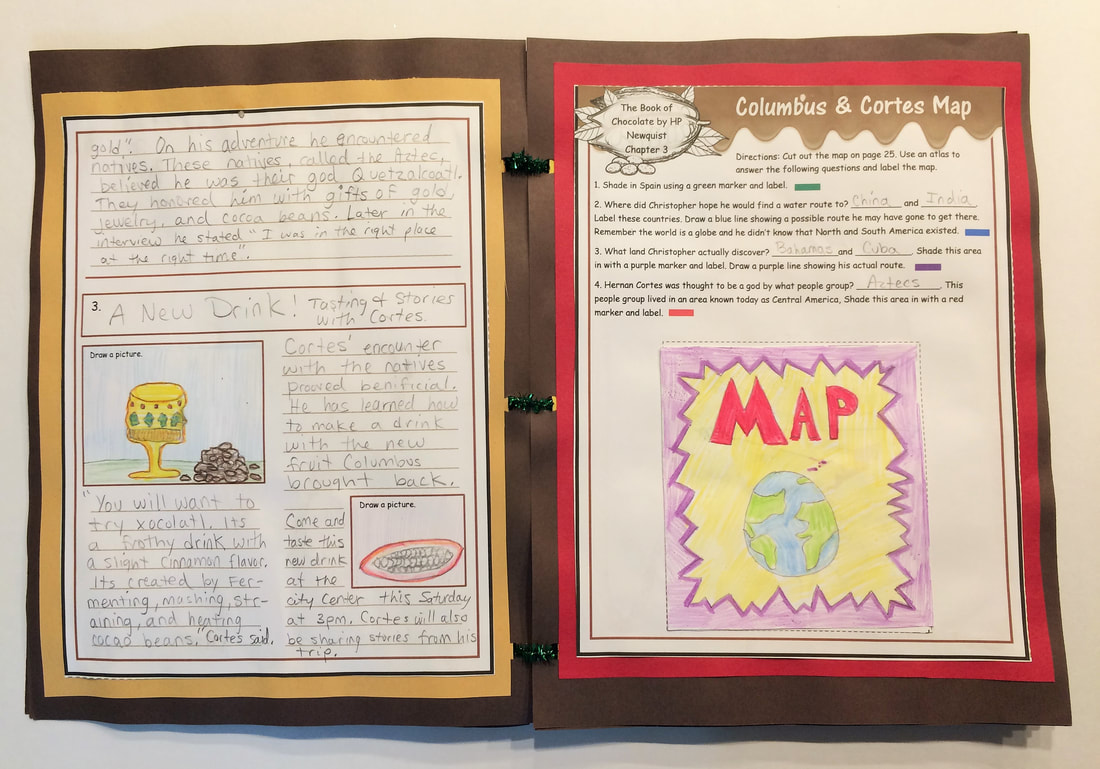 gold". On his adventure he encountered
natives. These natives, called the Aztec,
believed he was their god Quetzalcoatl.
They honored him with gifts of gold,
jewelry, and cocoa beans. Later in the
interview he stated "I was in the right place
at the right time".
3. A New Drink! Tasting & Stories
with Cortes.
Draw a picture.
Cortes' encounter
with the natives
proved benificial.
He has learned how
to make a drink
with the new
fruit Columbus
brought back.
"You will want to
try xocolatl. Its
a frothy drink with
a slight cinnamon flavor.
Its created by Fer-
menting, mashing, str-
aining, and heating
cacao beans." Cortes said.
Draw a picture.
Come and
taste this
new drink
at the
city Center this Saturday
at 3pm. Cortes will also
be sharing stories from his
trip.
The Book of
Chocolate by HP
Newquist
Chapter 3
Columbus & Cortes Map
Directions: Cut out the map on page 25. Use an atlas to
answer the following questions and label the map.
1. Shade in Spain using a green marker and label.
2. Where did Christopher hope he would find a water route to? China and India.
Label these countries. Draw a blue line showing a possible route he may have gone to get there.
Remember the world is a globe and he didn't know that North and South America existed.
3. What land Christopher actually discover? Bahamas and Cuba. Shade this area
in with a purple marker and label. Draw a purple line showing his actual route.
4. Hernan Cortes was thought to be a god by what people group? Aztecs. This
people group lived in an area known today as Central America, Shade this area in with a red
marker and label.
MAP